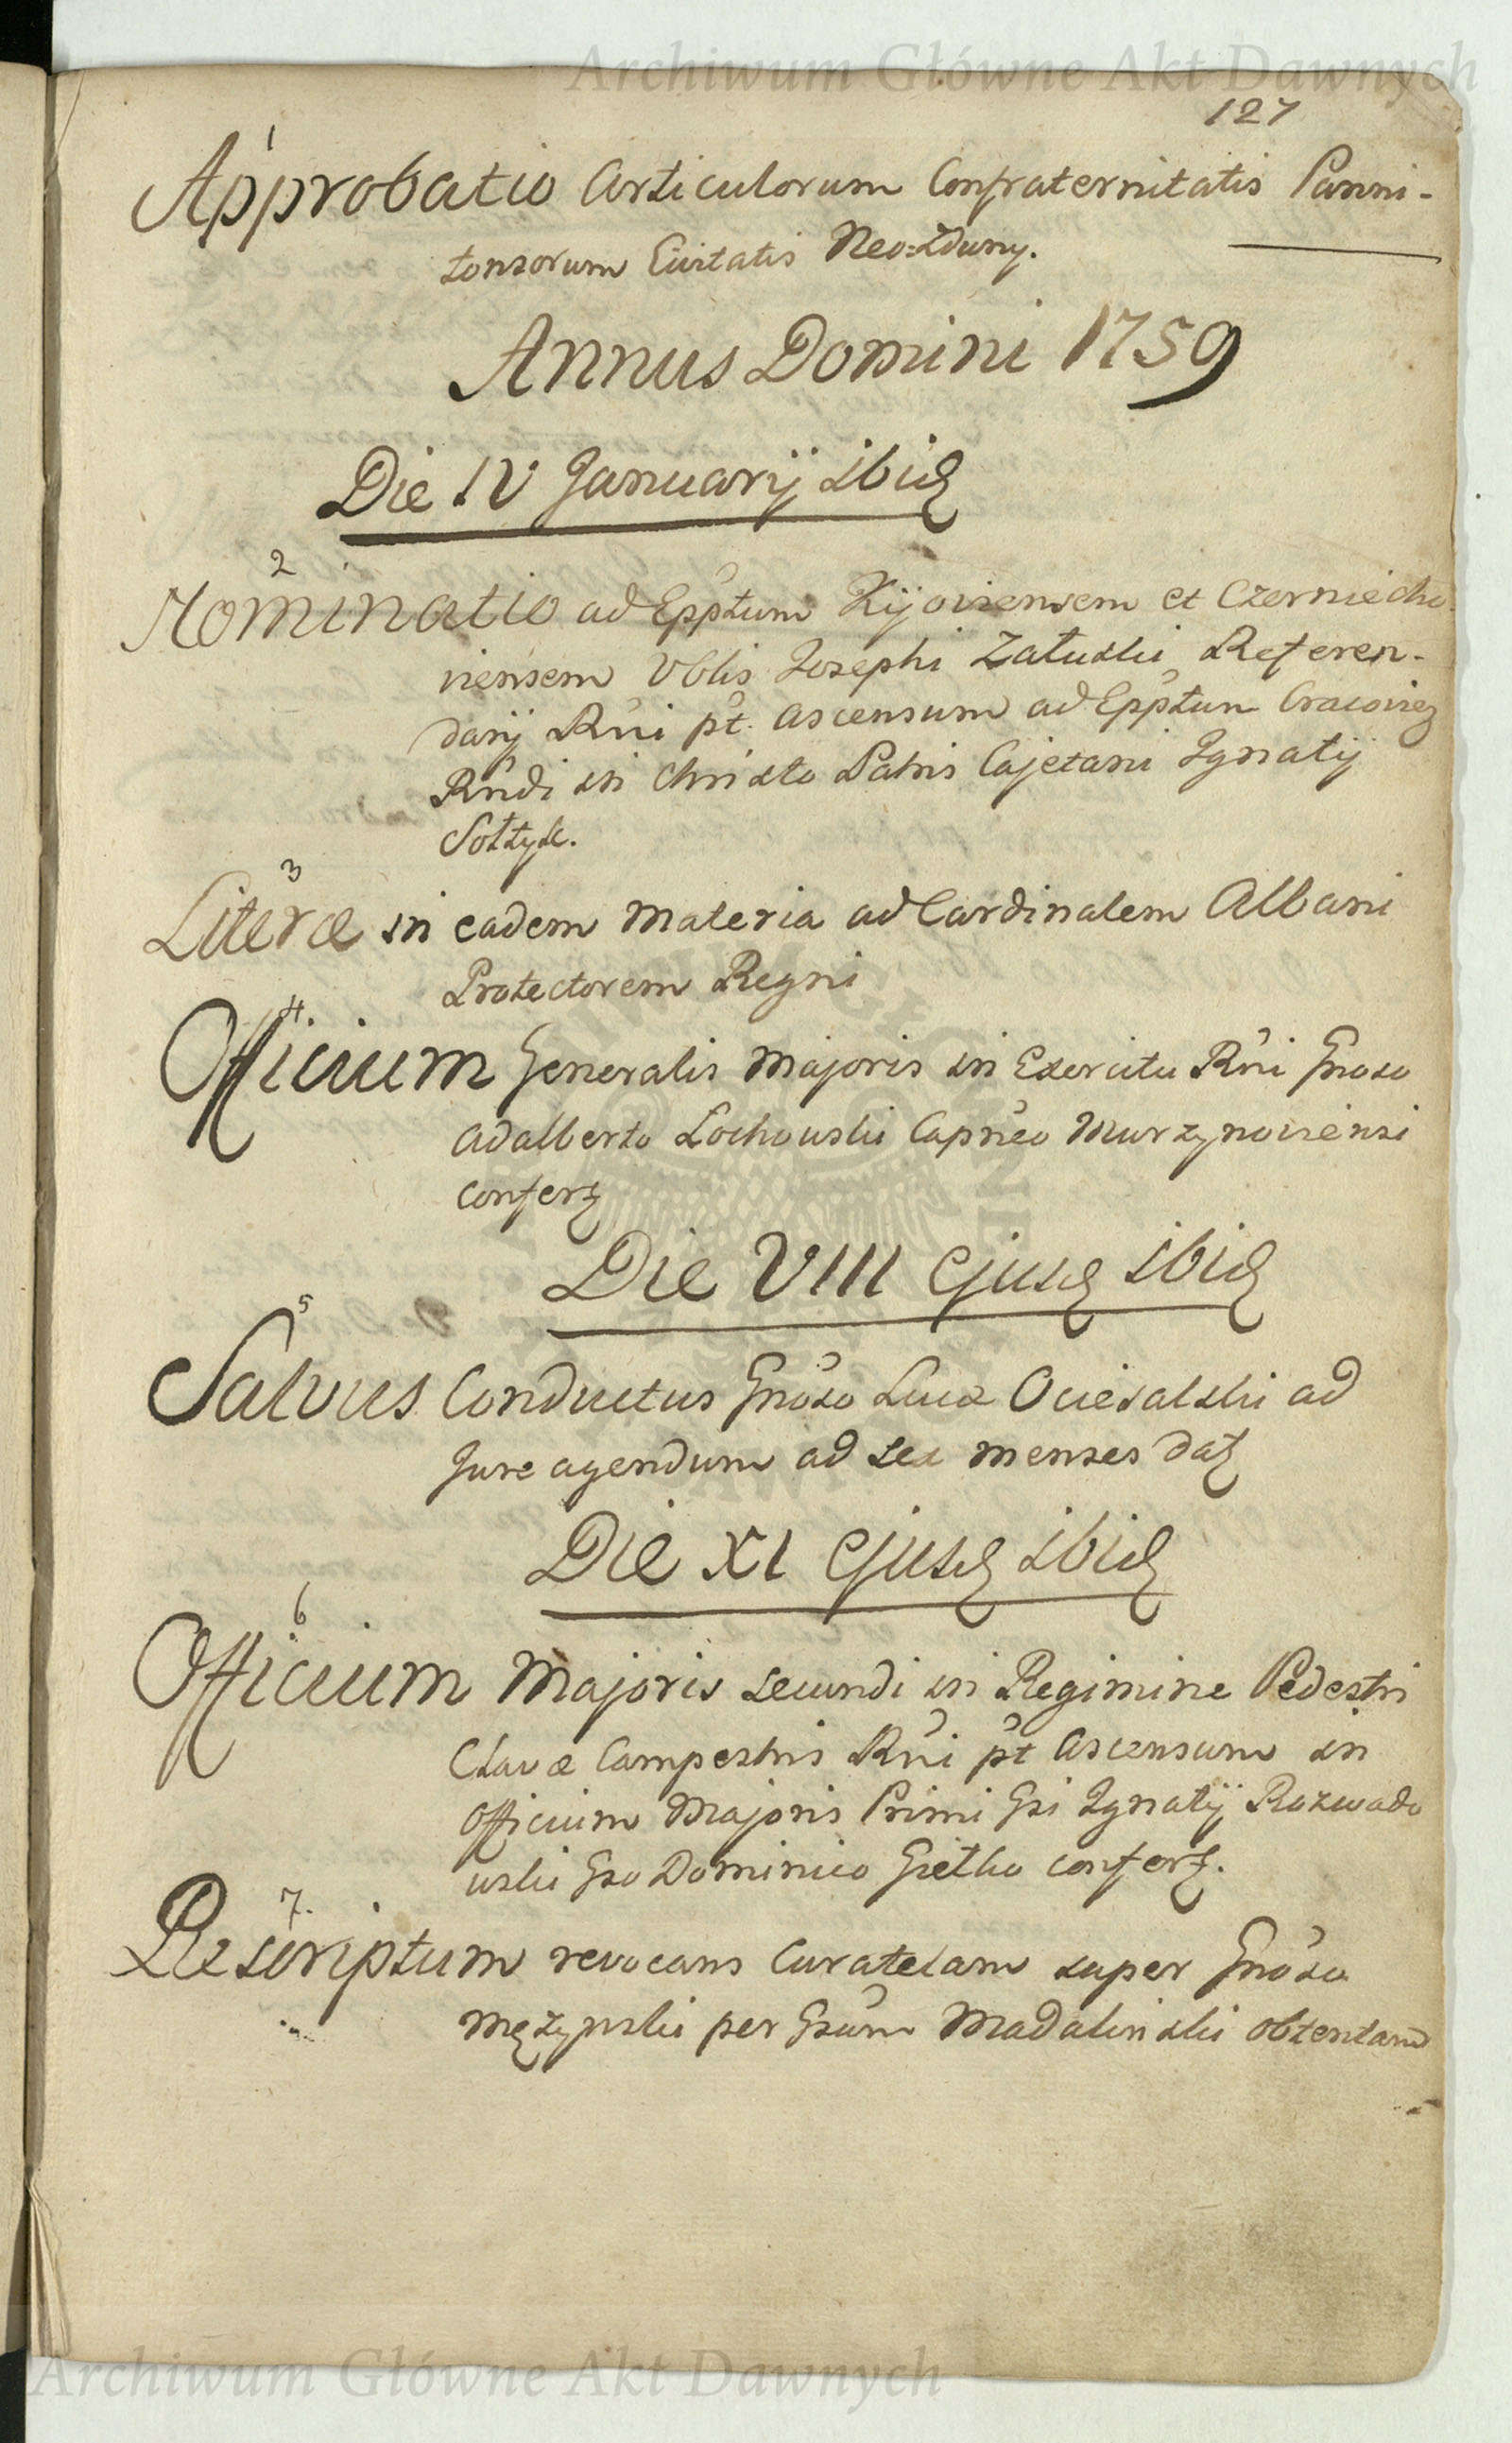 Archiwum Główne Akt Dawnych
127
1
Approbatio Articulorum Confraternitatis Panni-
tonsorum Civitatis Neo=Zduny.
Annus Domini 1759
Die IV Januarij ibid
2
Nominatio ad Epptum Kijoviensem et Czerniecho
viensem Vblis Josephi Załuski Referen-
darij Rni pt. ascensum ad Epptum Cracovien
Rndi in Christo Patris Cajetani Ignatij
Sołtyk.
3
Literæ in eadem materia ad Cardinalem Albani
Protectorem Regni
4
Officium Generalis Majoris in Exercitu Rni Gnoso
Adalberto Lochowski Capneo Murzynoviensi
confert
Die VIII ejusd ibid
5
Salvus Conductus Gnoso Lucæ Ociesalski ad
Jure agendum ad sex menses dat
Die XI ejusd ibid
6
Officium Majoris secundi in Regimine Pedestri
Clavæ Campestris Rni pt ascensum in
Officium Majoris Primi Gsi Ignatij Rozwado
wski Gso Dominico Gietko confert.
7.
Rescriptum revocans Curatelam super Gnoso
Mężynski per Gsum Madalinski obtentam
Archiwum Główne Akt Dawnych